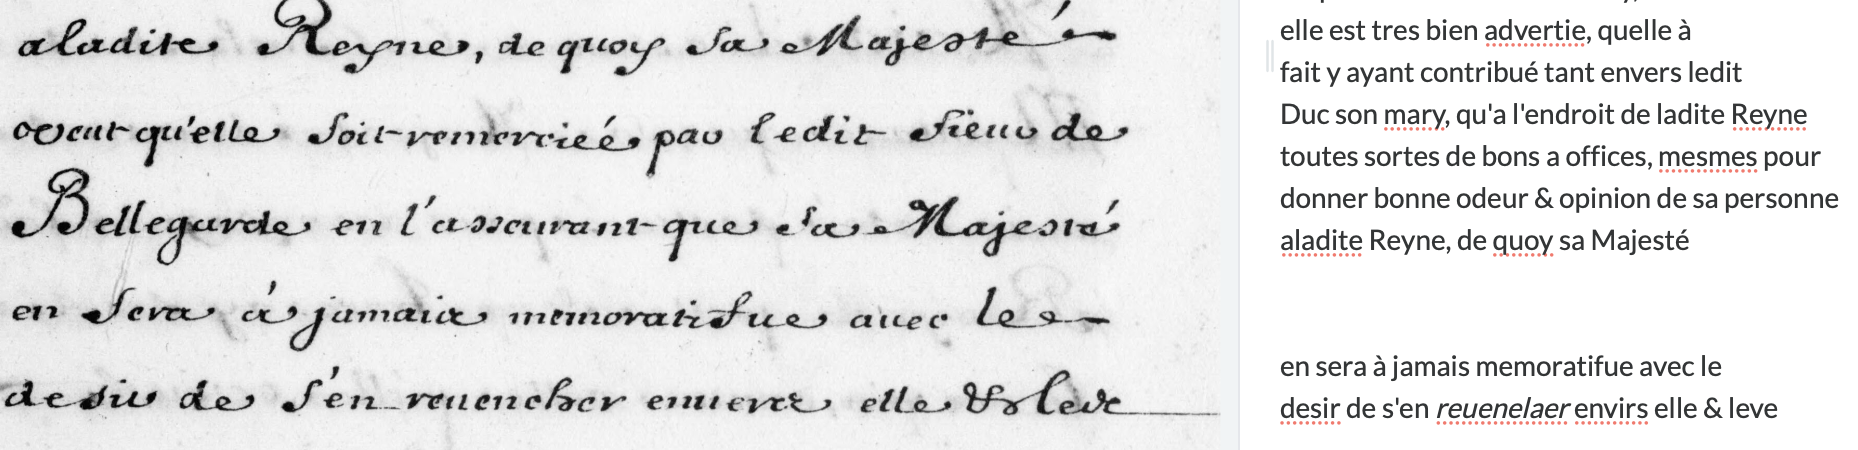 aladite Reyne, de quoy sa Majesté
veut qu'elle soit remerciée par ledit sieur de
Bellegarde en l'asseurant que sa Majesté
en sera à jamais memoratifue auec le
desir de s'en reuencher enuers elle &
elle est tres bien advertie, quelle à
fait y ayant contribué tant envers ledit
Duc son mary, qu'a l'endroit de ladite Reyne
toutes sortes de bons a offices, mesmes pour
donner bonne odeur & opinion de sa personne
aladite Reyne, de quoy sa Majesté
en sera à jamais memoratifue avec le
desir de s'en reuenelaer envirs elle & leve